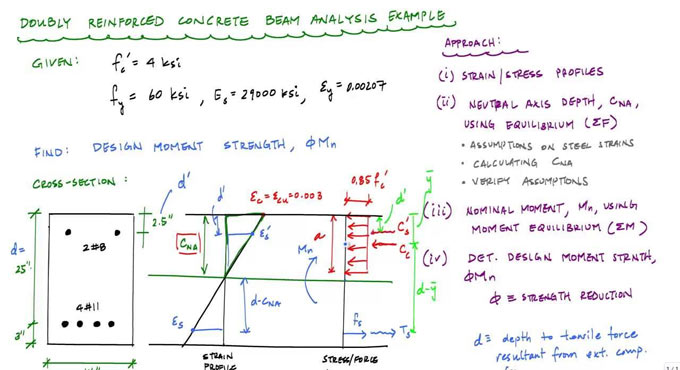 DOUBLY REINFORCED CONCRETE BEAM ANALYSIS EXAMPLE
GIVEN: f'c = 4 ksi
fy = 60 ksi, Es = 29000 ksi, εy = 0.00207
FIND: DESIGN MOMENT STRENGTH, ϕMn
CROSS-SECTION:
d'
2.5"
2#8
d=
25"
4#11
3"
d'
εc = εcu = 0.003
CNA
εs'
d-CNA
εs
STRAIN
PROFILE
0.85 f'c
a
Mn
fs
Ts
d'
ȳ
Cs'
Cc
d-ȳ
STRESS/FORCE
APPROACH:
(i) STRAIN/STRESS PROFILES
(ii) NEUTRAL AXIS DEPTH, CNA,
USING EQUILIBRIUM (ΣF)
• ASSUMPTIONS ON STEEL STRAINS
• CALCULATING CNA
• VERIFY ASSUMPTIONS
(iii) NOMINAL MOMENT, Mn, USING
MOMENT EQUILIBRIUM (ΣM)
(iv) DET. DESIGN MOMENT STRNTH,
ϕMn
ϕ ≡ STRENGTH REDUCTION
d ≡ depth to tensile force
resultant from ext. comp.